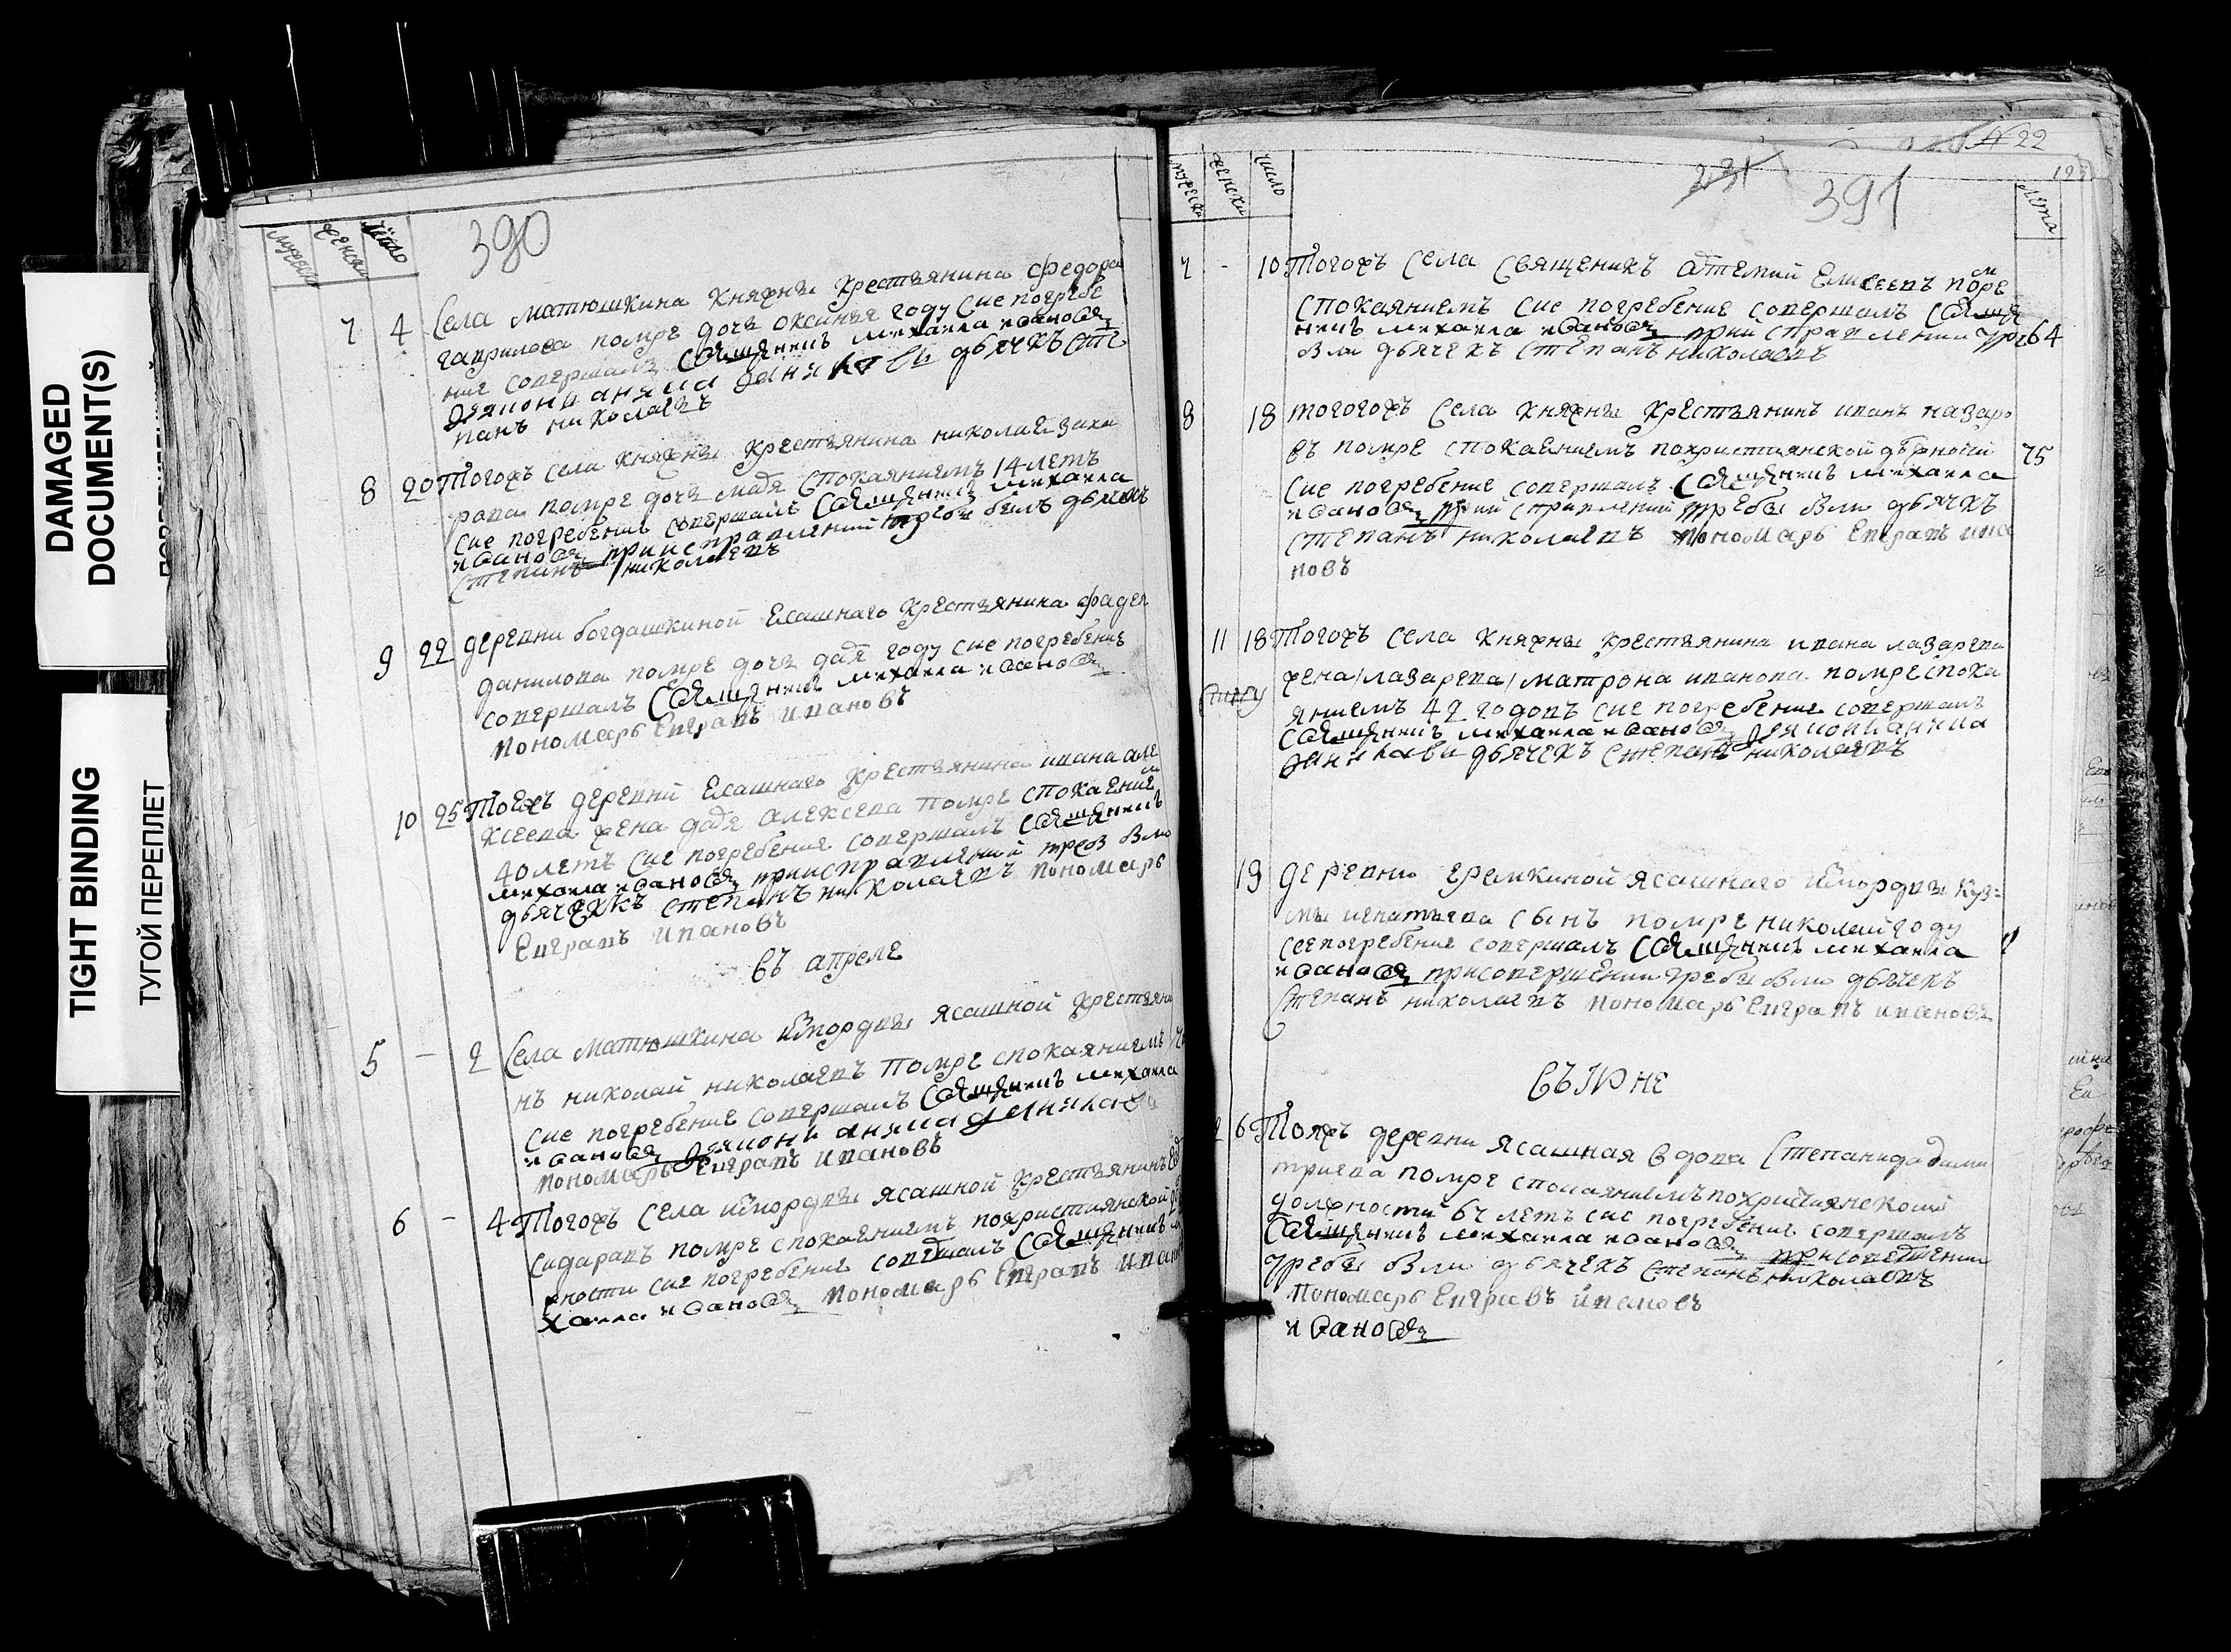 DAMAGED
DOCUMENT(S)
TIGHT BINDING
ТУГОЙ ПЕРЕПЛЕТ
390
число
7 4 Села матюшкина княжны крестьянина федора
гаврилова помре дочь оксинья году сие погребе
ние совершалъ священникъ михаила ивановъ
дьячекъ сте
панъ николаевъ
8 20 Тогожъ села княжны крестьянина николая заха
рова помре дочь с покаяниемъ 14 летъ
сие погребение совершалъ священникъ михаила
ивановъ при исправлении требы былъ дьячекъ
степанъ николаевъ
9 22 деревни богдашкиной ясашнаго крестьянина фадея
данилова помре дочь году сие погребение
совершалъ священникъ михаила ивановъ
пономарь Евграпъ ивановъ
10 25 Тоежъ деревни ясашнаго крестьянина ивана але
ксеева жена алексева помре с покаениемъ
40 летъ сие погребение совершалъ священникъ
михаила ивановъ при исправлений треб
дьячекъ степанъ николаевъ пономарь
Евграпъ ивановъ
въ апреле
5 - 2 Села матюшкина измордвы ясашной крестьяни
нъ николай николаевъ помре с покаяниемъ
сие погребение совершалъ священникъ михаила
ивановъ
пономарь Евграпъ ивановъ
6 - 4 Тогожъ села измордвы ясашной крестьянинъ
сидаравъ помре с покаениемъ похристианской
жности сие погребение совершалъ священникъ ми
хаила ивановъ пономарь Евграпъ ивановъ
22
231
391
число
лета
7 - 10 Тогожъ села священикъ Елисеевъ помре
с покаяниемъ сие погребение совершалъ священ
никъ михаила ивановъ при исправлении 64
дьячекъ степанъ николаевъ
8 18 тогогожъ села княжны крестьянинъ иванъ назаро
въ помре с покаениемъ похристианской
75
сие погребение совершалъ священникъ михаила
ивановъ при исправлений требы дьячекъ
степанъ николаевъ пономарь Евграпъ ива
новъ
11 18 Тогожъ села княжны крестьянина ивана лазарева
жена /лазарева/ матрона иванова помре с пока
яниемъ 42 годовъ сие погребение совершалъ
священникъ михаила ивановъ
дьячекъ степанъ николаевъ
19 деревни еремкиной ясашнаго измордвы куз=
мы игнатьева сынъ помре николай году
сее погребение совершалъ священникъ михаила
ивановъ при совершении требы дьячекъ
степанъ николаевъ пономарь Евграпъ ивановъ
въ июне
2 6 Тояжъ деревни ясашная вдова степанида дими
триева помре с покаяниемъ похристиянской
должности 67 летъ сие погребение совершалъ
священникъ михаила ивановъ при совершении
требы дьячекъ степанъ николаевъ
пономарь Евгравъ ивановъ
ивановъ